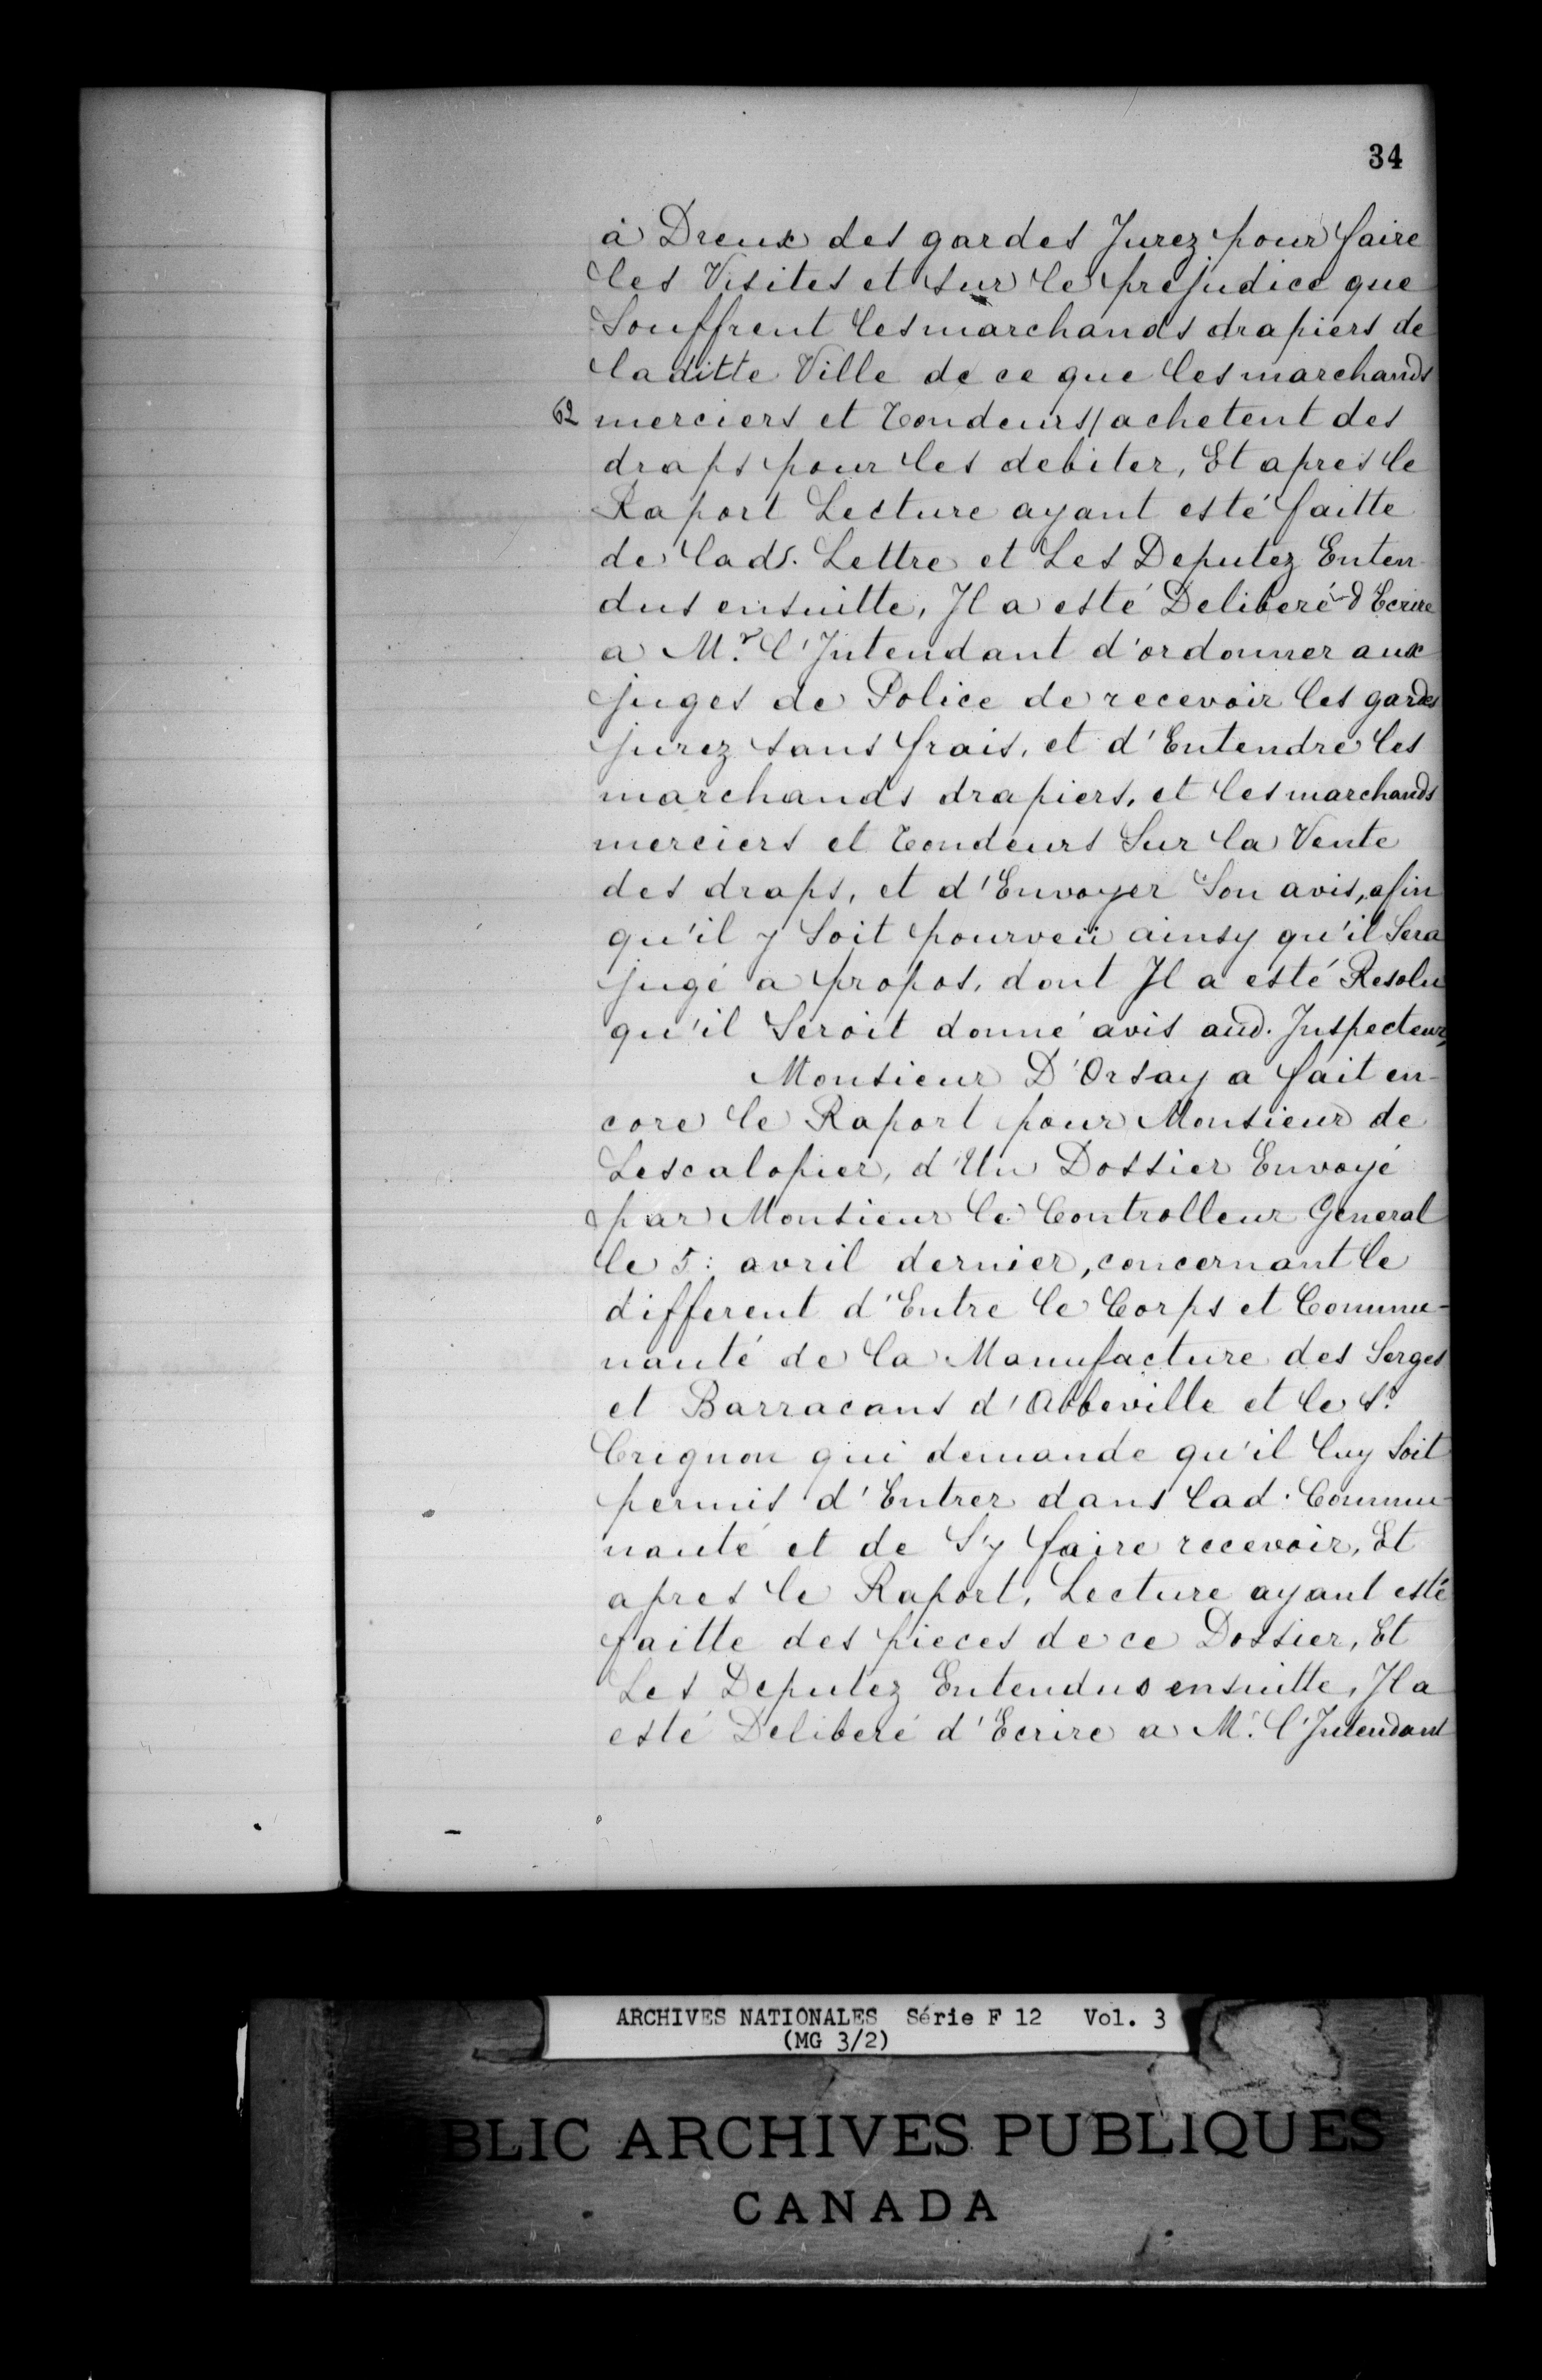 34
à Dreux des gardes Jurez pour faire
les Visites et sur le prejudice que
Souffrent les marchands drapiers de
laditte Ville de ce que les marchands
62 merciers et Tondeurs/ achetent des
draps pour les debiter, Et apres le
Raport Lecture ayant esté faitte
de lads. Lettre et Les Deputez Enten-
dus ensuitte, Il a esté Deliberé d'Ecrire
a Mr. l'Intendant d'ordonner aux
juges de Police de recevoir les gardes
jurez sans frais, et d'Entendre les
marchands drapiers, et les marchands
merciers et Tondeurs Sur la Vente
des draps, et d'Envoyer Son avis, afin
qu'il y Soit pourveü ainsy qu'il Sera
jugé a propos, dont Il a esté Resolu
qu'il Seroit donné avis aud. Inspecteur,
Monsieur D'Orsay a fait en-
core le Raport pour Monsieur de
Lescalopier, d'Un Dossier Envoyé
par Monsieur le Controlleur General
le 5: avril dernier, concernant le
different d'Entre le Corps et Commu-
nauté de la Manufacture des Serges
et Barracans d'Abbeville et le Sr.
Crignon qui demande qu'il luy Soit
permis d'Entrer dans lad. Commu-
nauté et de S'y faire recevoir, Et
apres le Raport, Lecture ayant esté
faitte des pieces de ce Dossier, Et
Les Deputez Entendus ensuitte, Il a
esté Deliberé d'Ecrire a Mr. l'Intendant
ARCHIVES NATIONALES Série F 12 Vol. 3
(MG 3/2)
BLIC ARCHIVES PUBLIQUES
CANADA